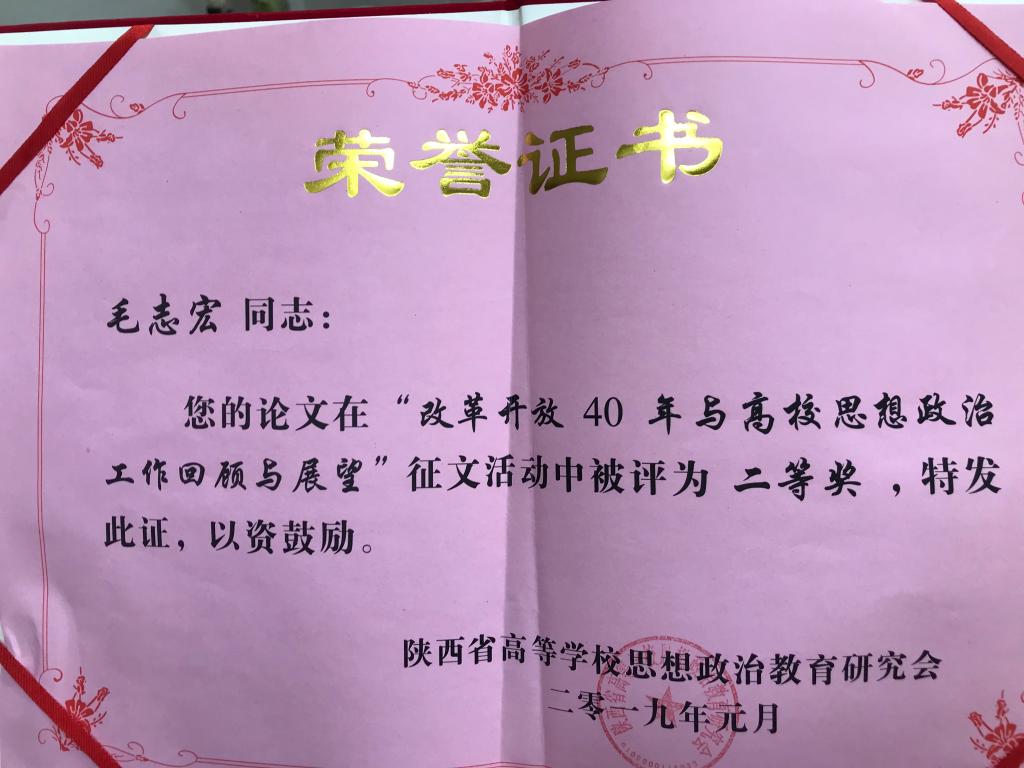 荣誉证书
毛志宏 同志：
您的论文在“改革开放 40 年与高校思想政治
工作回顾与展望”征文活动中被评为 二等奖 ，特发
此证，以资鼓励。
陕西省高等学校思想政治教育研究会
二零一九年元月